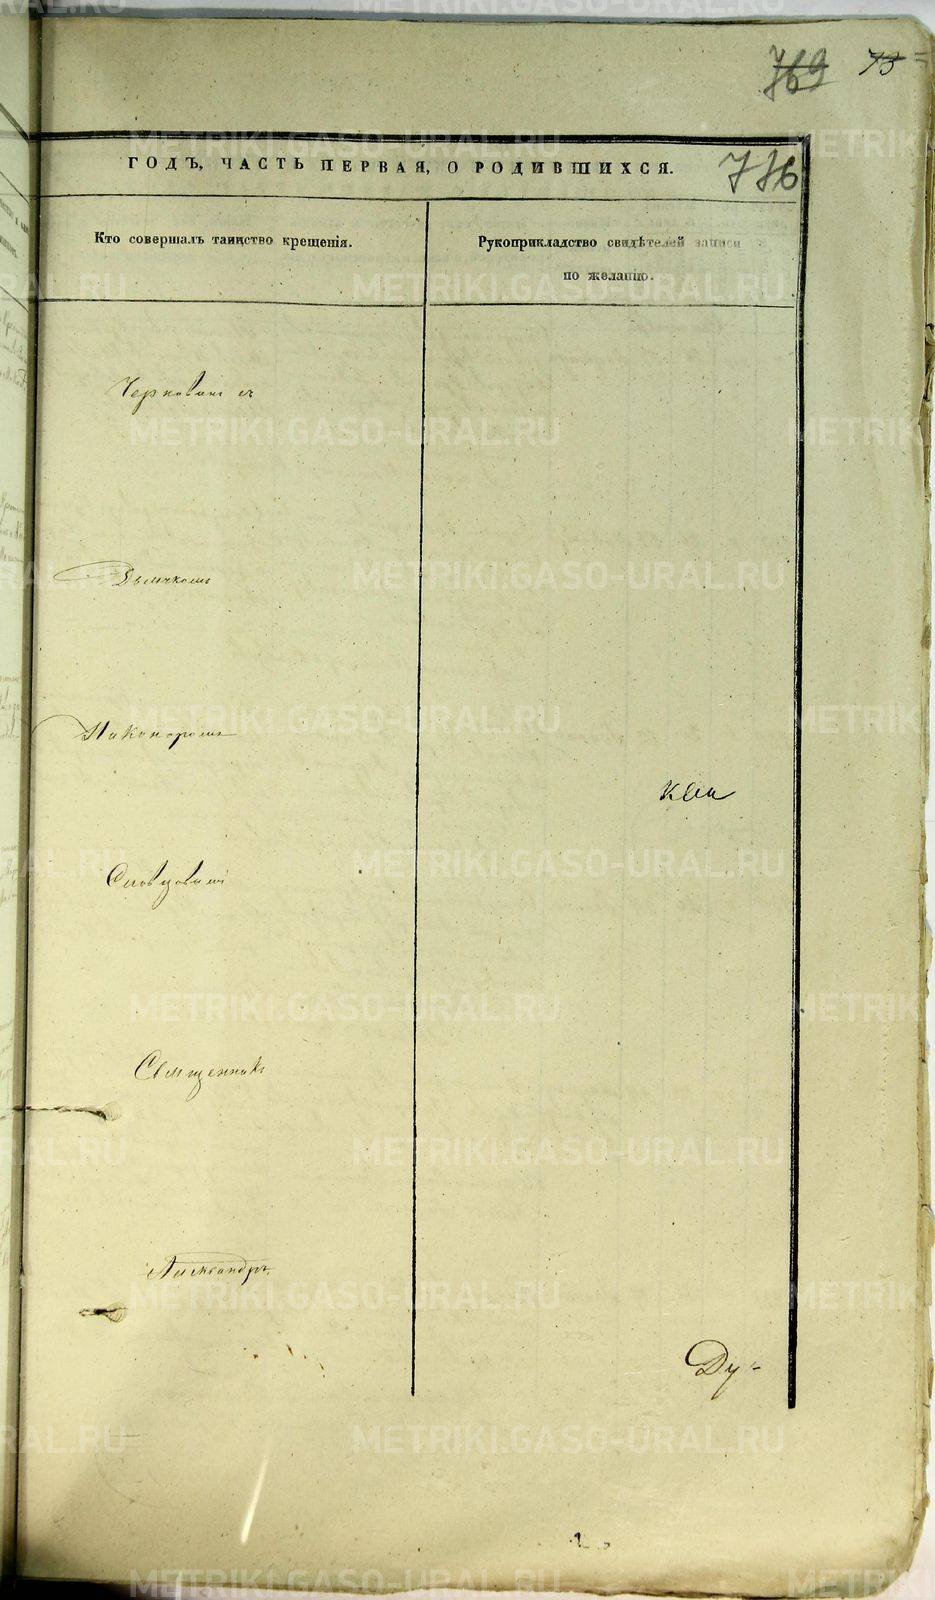 769 73
ГОДЪ, ЧАСТЬ ПЕРВАЯ, О РОДИВШИХСЯ.
776
Кто совершалъ таинство крещенія.
Рукоприкладство свидѣтелей записи
по желанію.
Дьячкомъ
Никаноромъ
Словцовымъ
Священникъ
Александръ
Ду-
METRIKI.GASO-URAL.RU